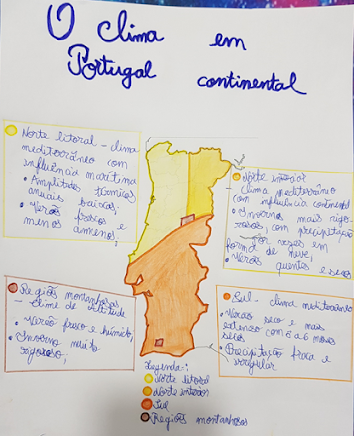 O clima em
Portugal continental
Norte litoral - clima
mediterrâneo com
influência marítima
• Amplitudes térmicas
anuais baixas;
• Verões frescos e
menos amenos;
Norte interior
clima mediterrâneo
com influência continental
• Invernos mais rigo-
rosos com precipitação
por vezes em
forma de neve;
Verões quentes e secos
Regiões montanhosas
- clima de altitude
• Verão fresco e húmido;
• Inverno muito
rigoroso;
Sul - clima mediterrâneo
• Verão seco e mais
extenso com 5 a 6 meses
secos
• Precipitação fraca e
irregular
Legenda:
Norte litoral
Norte interior
Sul
Regiões montanhosas